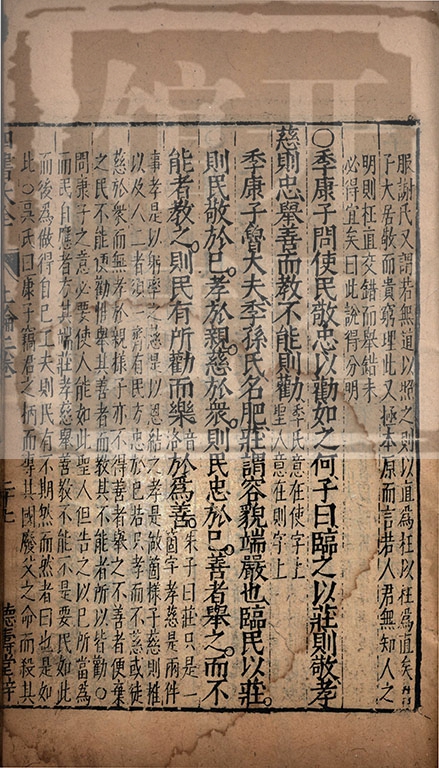 服謝氏又謂若無道以照之則以直爲枉以枉爲直矣
子大居敬而貴窮理此又極本原而言若人君無知人之
明則枉直交錯而舉錯未
必得宜矣曰此說得分明
○季康子問使民敬忠以勸如之何子曰臨之以莊則敬孝
慈則忠舉善而教不能則勸
季氏意在使字上
聖人意在則字上
季康子魯大夫季孫氏名肥莊謂容貌端嚴也臨民以莊
則民敬於已孝於親慈於衆則民忠於已善者舉之而不
能者教之則民有所勸而樂
音洛
於爲善
朱子曰莊只是一
箇字孝慈是兩件
事孝是以躬率之慈是以恩結之孝是做箇樣子慈則推
以及人二者須一齊有民方忠於已若只孝而不慈或徒
慈於衆而無孝於親樣子亦不得善者舉之不善者便棄
之民不能便勸惟舉其善者而教其不能者所以皆勸○
問康子之意必要使人能如此聖人但告之以已所當爲
而民自應者方其端莊孝慈舉善教不能不是要民如此
而後爲做得自已工夫則民有不期然而然者曰也是如
此○吳氏曰康子竊君之柄而專其國廢父之命而殺其
四書大全
上論二卷
二十七
德壽堂梓